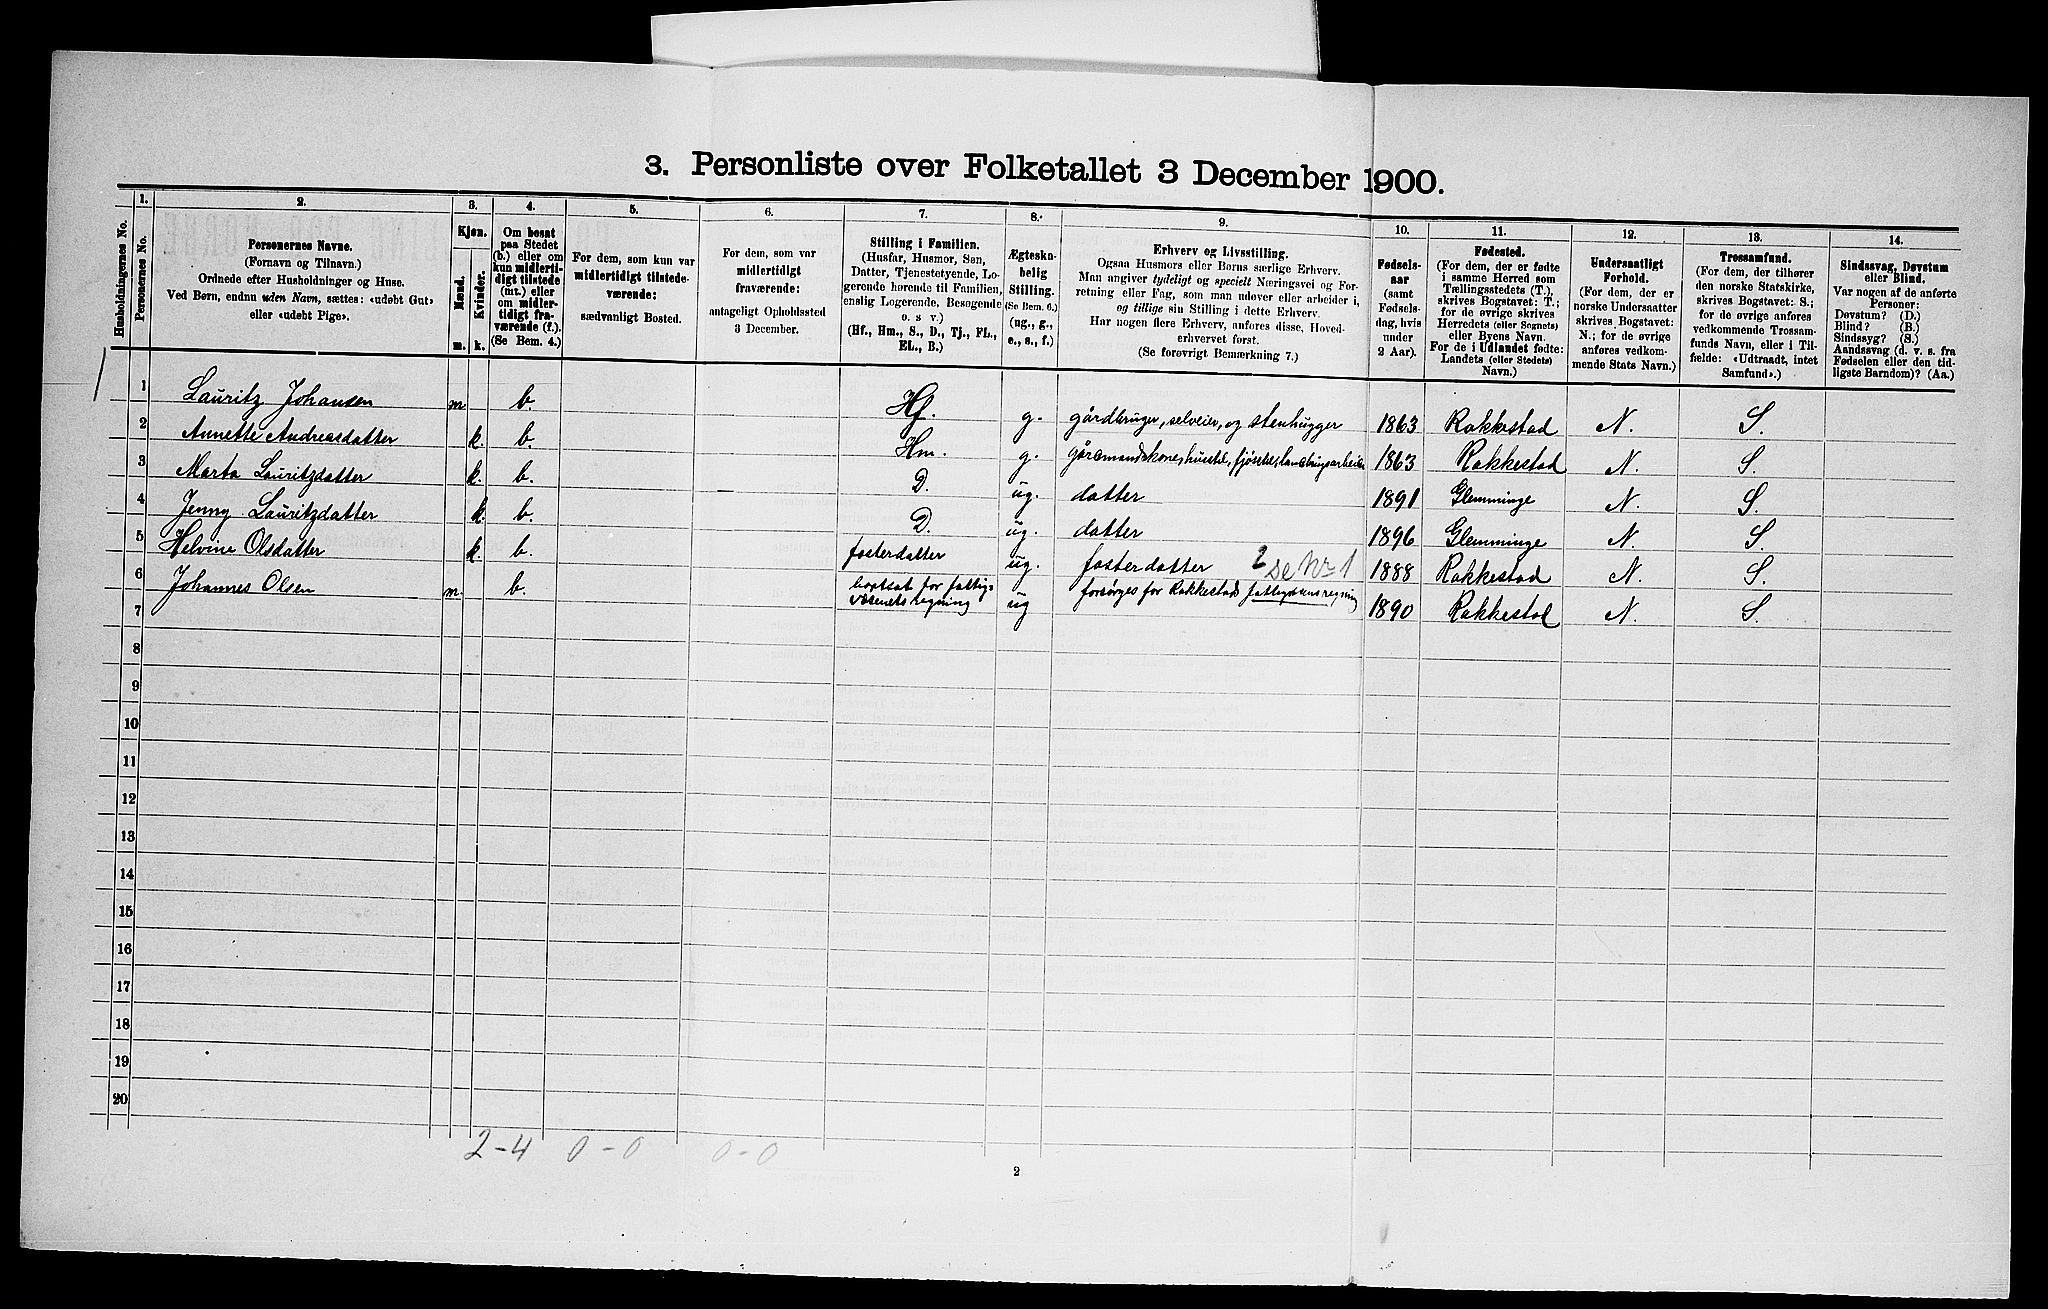 3. Personliste over Folketallet 3 December 1900.
1. 2. 3. 4. 5. 6. 7. 8. 9. 10. 11. 12. 13. 14.
Husholdningernes No.
Personernes No.
Personernes Navne.
(Fornavn og Tilnavn.)
Ordnede efter Husholdninger og Huse.
Ved Børn, endnu uden Navn, sættes: «udøbt Gut»
eller «udøbt Pige».
Kjøn.
Mænd.
Kvinder.
m. k.
Om bosat
paa Stedet
(b.) eller om
kun midlerti-
digt tilstede
(mt.) eller
om midler-
tidigt fra-
værende (f.).
(Se Bem. 4.)
For dem, som kun var
midlertidigt tilstede-
værende:
sædvanligt Bosted.
For dem, som var
midlertidigt
fraværende:
antageligt Opholdssted
3 December.
Stilling i Familien.
(Husfar, Husmor, Søn,
Datter, Tjenestetyende, Lo-
gerende hørende til Familien,
enslig Logerende, Besøgende
o. s v.)
(Hf., Hm., S., D., Tj., FL.,
EL., B.)
Ægteska-
belig
Stilling.
(Se Bem. 6.)
(ug., g.,
e., s., f.)
Erhverv og Livsstilling.
Ogsaa Husmors eller Børns særlige Erhverv.
Man angiver tydeligt og specielt Næringsvei og For-
retning eller Fag, som man udøver eller arbeider i,
og tillige sin Stilling i dette Erhverv.
Har nogen flere Erhverv, anføres disse, Hoved-
erhvervet først.
(Se forøvrigt Bemærkning 7.)
Fødsels-
aar
(samt
Fødsels-
dag, hvis
under
2 Aar).
Fødested.
(For dem, der er fødte
i samme Herred som
Tællingsstedets (T.),
skrives Bogstavet: T.;
for de øvrige skrives
Herredets (eller Sognets)
eller Byens Navn.
For de i Udlandet fødte:
Landets (eller Stedets)
Navn.)
Undersaatligt
Forhold.
(For dem, der er
norske Undersaatter
skrives Bogstavet:
N.; for de øvrige
anføres vedkom-
mende Stats Navn.)
Trossamfund.
(For dem, der tilhører
den norske Statskirke,
skrives Bogstavet: S.;
for de øvrige anføres
vedkommende Trossam-
funds Navn, eller i Til-
fælde: «Udtraadt, intet
Samfund».)
Sindssvag, Døvstum
eller Blind.
Var nogen af de anførte
Personer:
Døvstum? (D.)
Blind? (B.)
Sindssyg? (S.)
Aandssvag (d. v. s. fra
Fødselen eller den tid-
ligste Barndom)? (Aa.)
1 1 Lauritz Johansen m b. Hf. g. gårdbruger, selveier, og stenhugger 1863 Rakkestad N. S.
2 Annette Andreasdatter k. b. Hm. g. gårdmandskone, husstel, fjøsstel, 1863 Rakkestad N. S.
3 Marta Lauritzdatter k. b. D. ug. datter 1891 Glemminge N. S.
4 Jenny Lauritzdatter k. b. D. ug. datter 1896 Glemminge N. S.
5 Helvine Olsdatter k. b. fosterdatter ug. fosterdatter ? se Nr 1 1888 Rakkestad N. S.
6 Johannes Olsen m. b. bortsat for fattig-
væsenets regning ug forsørges for Rakkestads regning 1890 Rakkestad N. S.
7
8
9
10
11
12
13
14
15
16
17
18
19
20
2-4 0-0 0-0
2